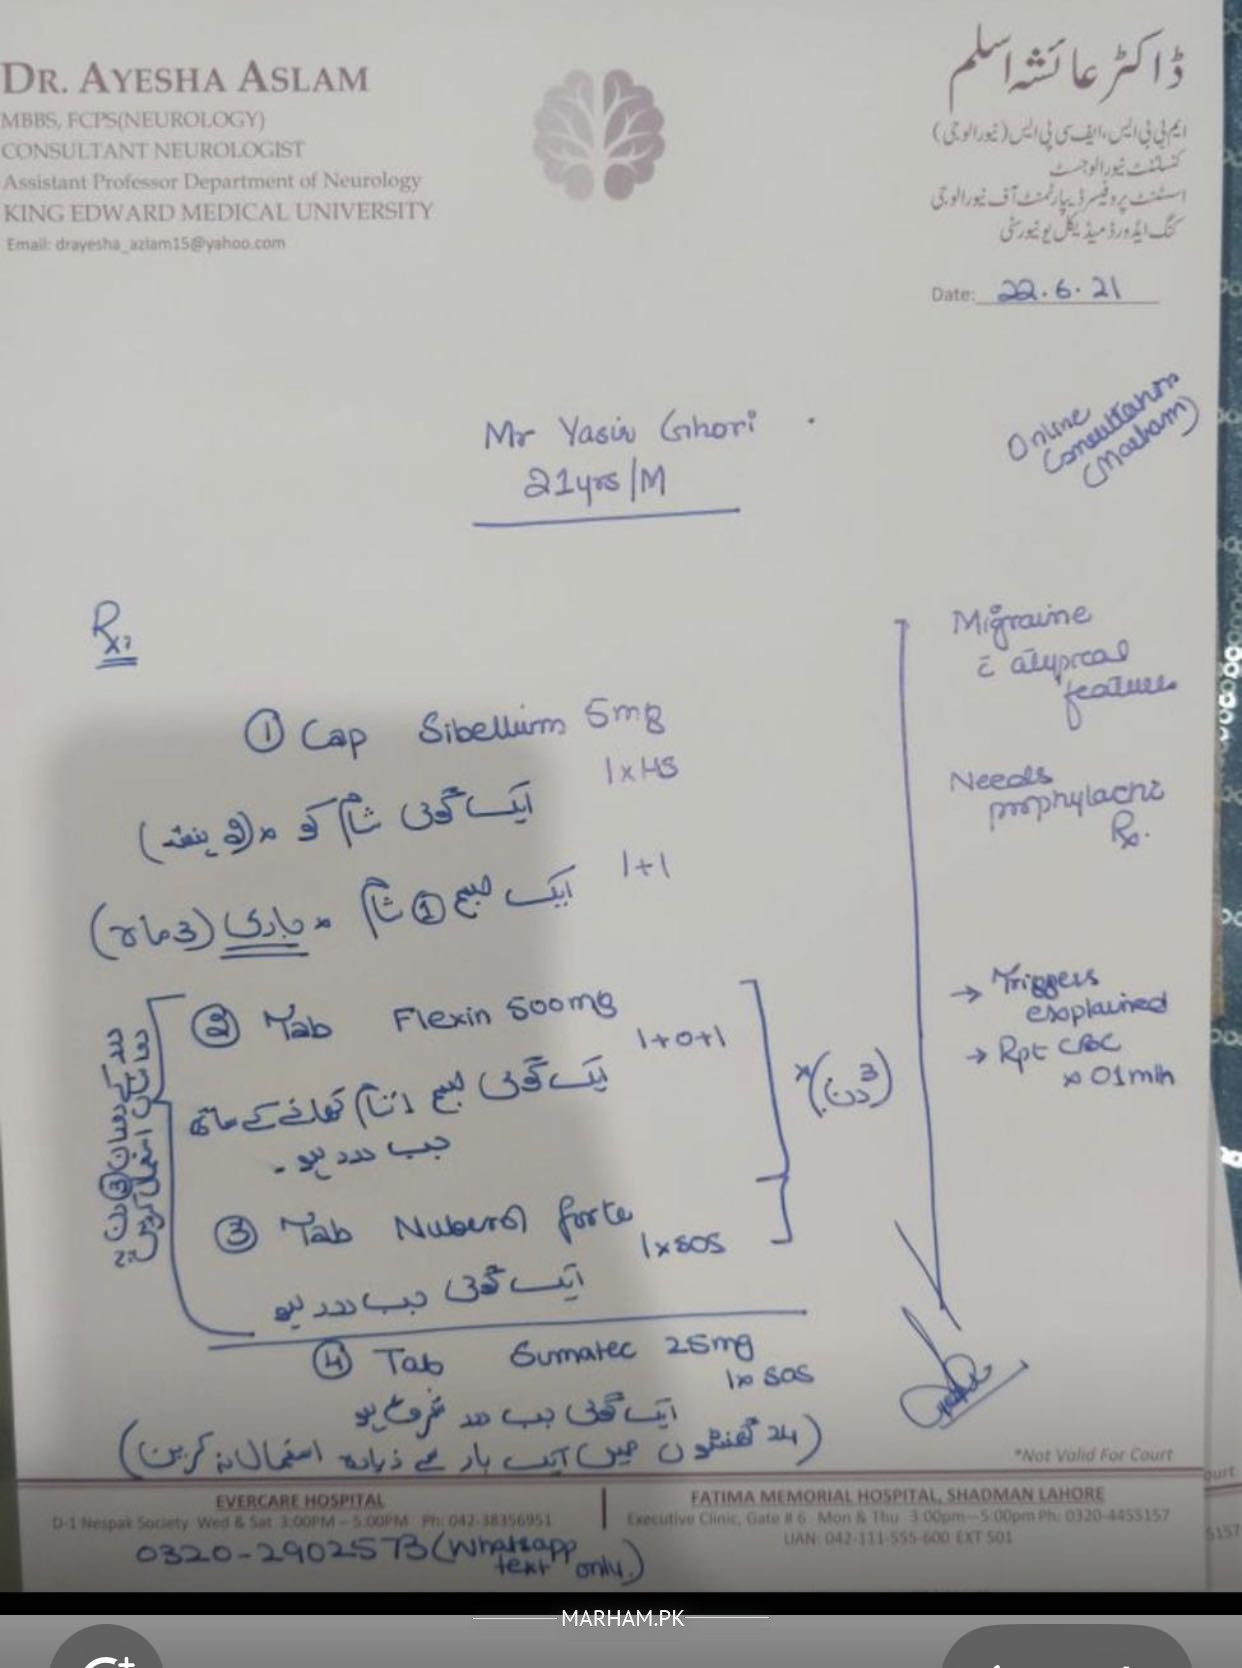 DR. AYESHA ASLAM
MBBS, FCPS(NEUROLOGY)
CONSULTANT NEUROLOGIST
Assistant Professor Department of Neurology
KING EDWARD MEDICAL UNIVERSITY
Email: drayesha_azlam15@yahoo.com
ڈاکٹر عائشہ اسلم
ایم بی بی ایس، ایف سی پی ایس (نیورالوجی)
کنسلٹنٹ نیورالوجسٹ
اسسٹنٹ پروفیسر ڈیپارٹمنٹ آف نیورالوجی
کنگ ایڈورڈ میڈیکل یونیورسٹی
Date: 22.6.21
Online
Consultation
(Marham)
Mr Yasir Ghori
21yrs/M
Rx:
① Cap Sibelium 5mg
1xHS
ایک گولی شام کو x (2 ہفتہ)
1+1
ایک صبح ① شام x جاری (3 ماہ)
② Tab Flexin 500mg
1+0+1
ایک گولی صبح، شام کھانے کے ساتھ
جب درد ہو۔
③ Tab Nuberol forte
1xSOS
ایک گولی جب درد ہو
x (3 دن)
درد کے دوران ③ دن
استعمال کریں
④ Tab Sumatec 25mg
1x SOS
ایک گولی جب درد شروع ہو
(24 گھنٹوں میں ایک بار سے زیادہ استعمال نہ کریں)
Migraine
c̄ atypical
features
Needs
prophylactic
Rx.
→ Triggers
explained
→ Rpt CBC
x 01 mth
*Not Valid For Court
EVERCARE HOSPITAL
D-1 Nespak Society Wed & Sat 3:00PM – 5:00PM Ph: 042-38356951
FATIMA MEMORIAL HOSPITAL, SHADMAN LAHORE
Executive Clinic, Gate # 6 Mon & Thu 3:00pm–5:00pm Ph: 0320-4455157
UAN: 042-111-555-600 EXT 501
0320-2902573 (Whatsapp
text only.)
MARHAM.PK